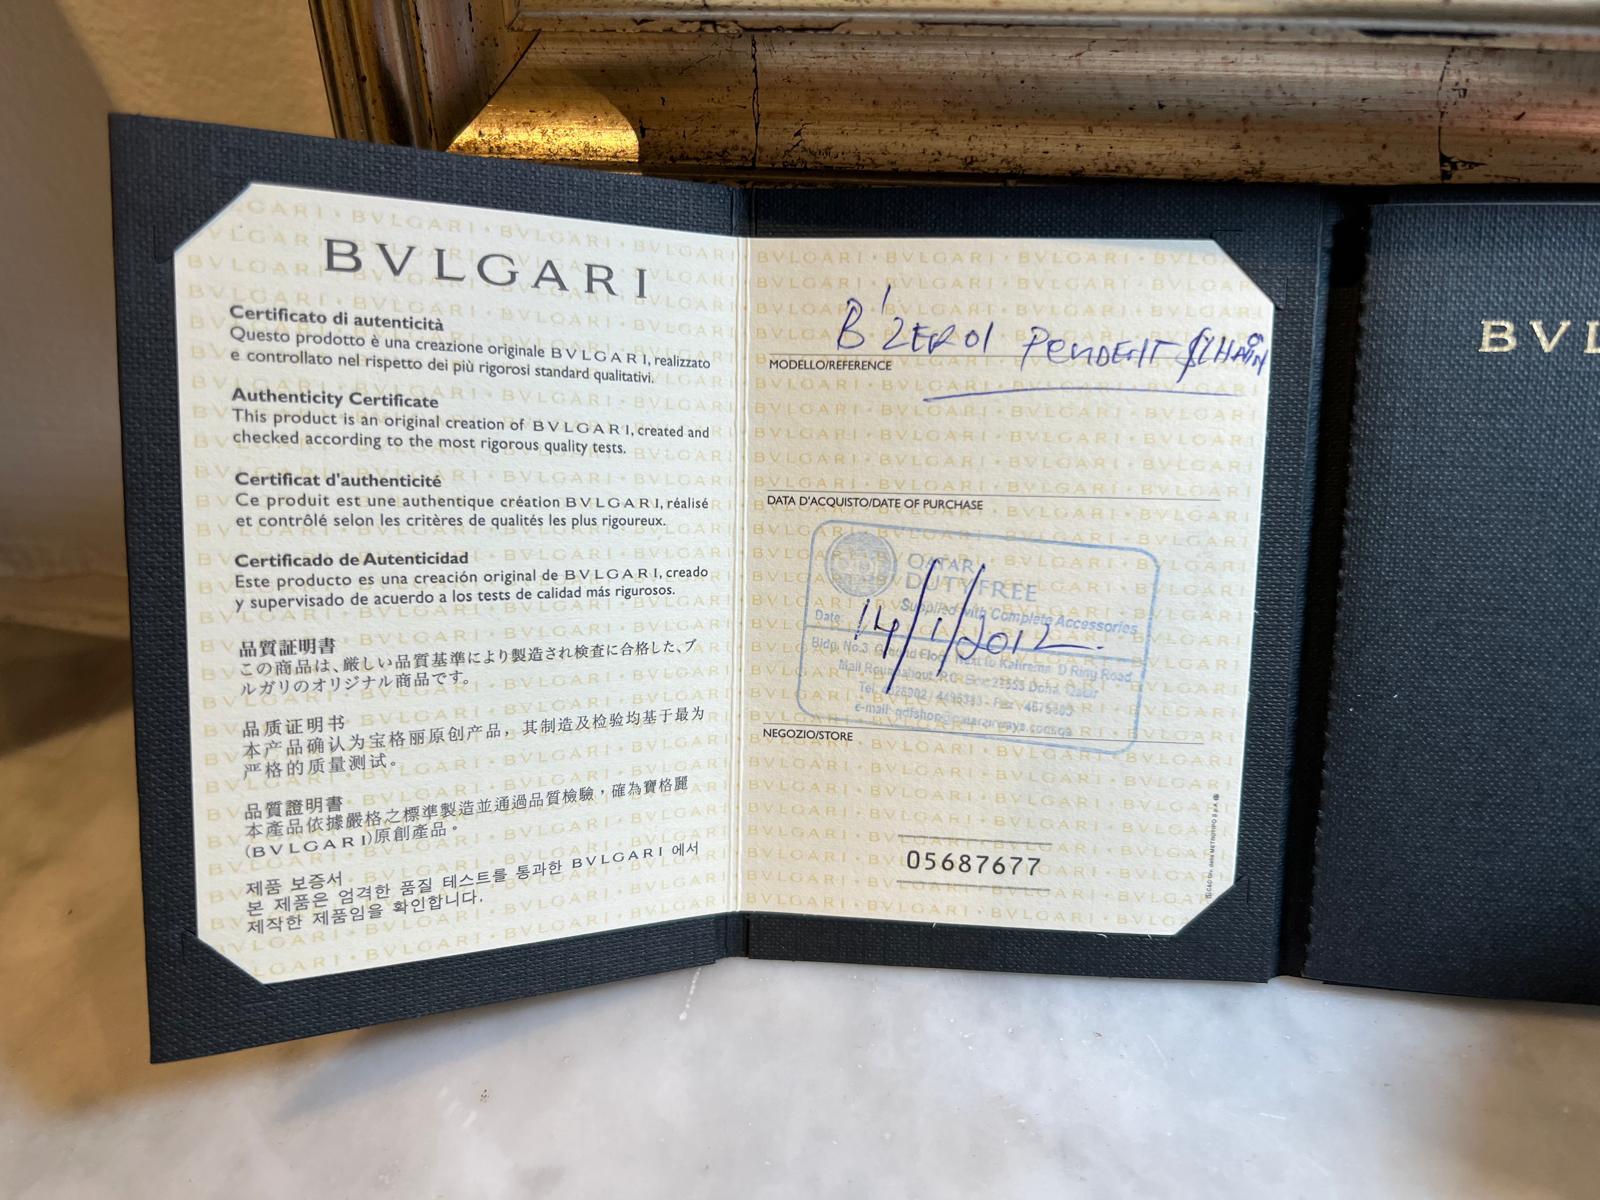 BVLGARI
Certificato di autenticità
Questo prodotto è una creazione originale BVLGARI, realizzato
e controllato nel rispetto dei più rigorosi standard qualitativi.
Authenticity Certificate
This product is an original creation of BVLGARI, created and
checked according to the most rigorous quality tests.
Certificat d'authenticité
Ce produit est une authentique création BVLGARI, réalisé
et contrôlé selon les critères de qualités les plus rigoureux.
Certificado de Autenticidad
Este producto es una creación original de BVLGARI, creado
y supervisado de acuerdo a los tests de calidad más rigurosos.
品質証明書
この商品は、厳しい品質基準により製造され検査に合格した、ブ
ルガリのオリジナル商品です。
品质证明书
本产品确认为宝格丽原创产品，其制造及检验均基于最为
严格的质量测试。
品質證明書
本產品依據嚴格之標準製造並通過品質檢驗，確為寶格麗
(BVLGARI)原創產品。
제품 보증서
본 제품은 엄격한 품질 테스트를 통과한 BVLGARI 에서
제작한 제품임을 확인합니다.
B'ZERO1 PENDENT
MODELLO/REFERENCE
DATA D'ACQUISTO/DATE OF PURCHASE
QATAR
DUTY FREE
Supplied with Complete Accessories
Date: 14/1/2012.
Bldp. No.3 Floor, Next to D Ring Road
Mall Doha, Qatar
Tel:
e-mail:
NEGOZIO/STORE
05687677
BVL